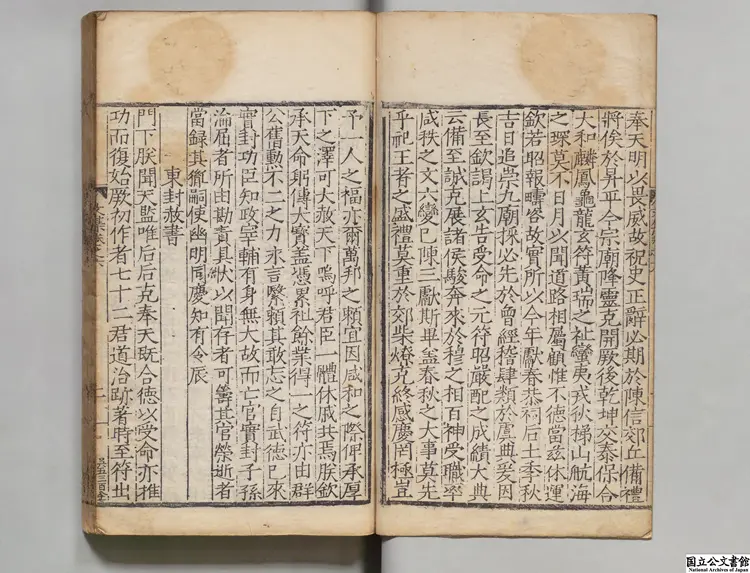 奉天明以畏威故祝史正辭必期於陳信郊丘備禮
將俟於昇平今宗廟降靈克開厥後乾坤交泰保合
大和麟鳳龜龍玄符黃瑞之祉蠻夷戎狄梯山航海
之琛莫不日月以聞道路相屬顧惟不德當茲休運
欽若昭報疇咨故實所以今年獻春恭祠后土季秋
吉日追崇九廟採必先於曾經稽肆類於虞典爰因
長至欽謁上玄告受命之元符昭嚴配之成績大典
云備至誠克展諸侯駿奔來於穆之相百神受職率
咸秩之文六變已陳三獻斯畢盖春秋之大事莫先
乎祀王者之盛禮莫重於郊柴燎克終感慶罔極豈
予一人之福亦爾萬邦之賴宜因感和之際俾承厚
下之澤可大赦天下嗚呼君臣一體休戚共焉朕欽
承天命矧傳大寳盖憑累社餘業得一之符亦由群
公舊勳不二之力永言繄賴其敢忘之自武德已來
實封功臣知政宰輔有身無大故而亡官實封子孫
淪屈者所由勘責具狀以聞存者可籌其官榮逝者
當録其胤嗣使幽明同慶知有令辰
東封赦書
門下朕聞天監唯后后克奉天旣合德以受命亦推
功而復始厥初作者七十二君道治跡著時至符出
国立公文書館
National Archives of Japan